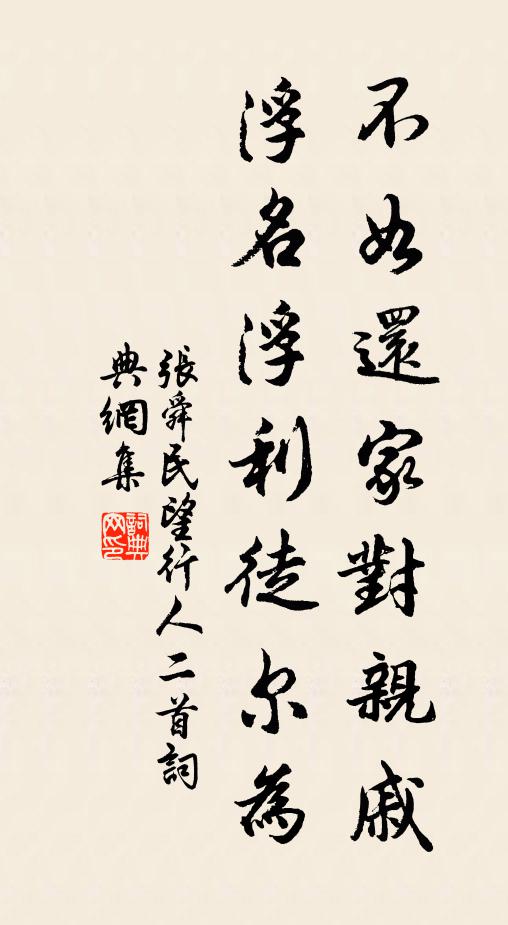 不如還家對親戚
浮名浮利徒尔為
張舜民望行人二首詞
典網集
詞典網印